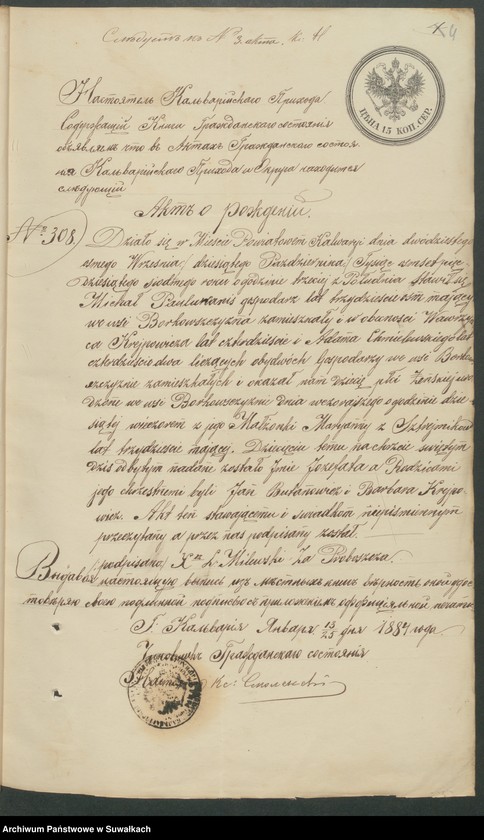 Следуетъ къ № 3 акта.
4
ЦѢНА 15 КОП. СЕР.
Настоятель Кальварійскаго Прихода
Содержащій Книги Гражданскаго состоянія
объявляетъ что въ Актахъ Гражданскаго состоя-
нія Кальварійскаго Прихода и Округа находится
слѣдующій
Актъ о рожденіи.
№ 308) Działo się w Mieście Powiatowem Kalwaryi dnia dwudziestego
ósmego Września / dziesiątego Października / Tysiąc ośmset pięć-
dziesiątego siódmego roku o godzinie trzeciej z Południa Stawił się
Michał Paulukanis gospodarz lat trzydzieści mający
we wsi Borkowszczyzna zamieszkały i w obecności Wawrzyń-
ca Krejpowicza lat czterdzieści i Adama Chmielewskiego lat
czterdzieści dwa liczących obydwóch Gospodarzy we wsi Borkow-
szczyznie zamieszkałych i okazał nam Dziecię płci Żeńskiej uro-
dzone we wsi Borkowszczyznie dnia wczorajszego o godzinie dzie-
siątej wieczorem z jego Małżonki Maryanny z
lat trzydzieści mającej. Dziecięciu temu na chrzcie świętym
dziś odbytym nadane zostało Imie Jozefata a Rodzicami
jego chrzestnemi byli Jan Butanowicz i Barbara Krejpo-
wicz. Akt ten stawającemu i świadkom niepiśmiennym
przeczytany a przez nas podpisany został.
podpisano) X. L Milewski Za Proboszcza.
Выдавая настоящую выпись изъ мѣстныхъ книгъ вѣрность оной удос-
товѣряю своею подписью съ приложеніемъ оффиціальной печати
Г. Кальварія Января 13/25 дня 1887 года
Чиновникъ Гражданскаго состоянія
Кс:
Archiwum Państwowe w Suwałkach